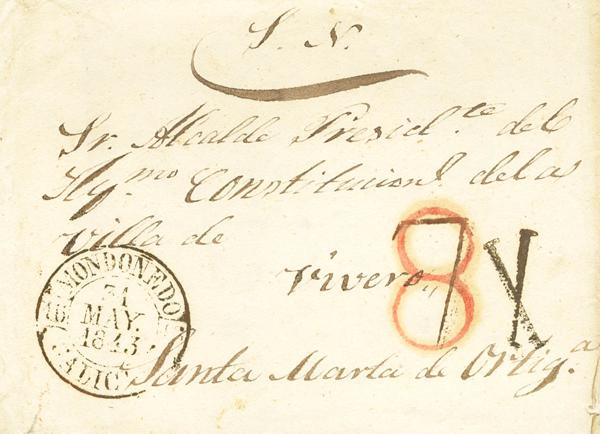 S. N.
Sr. Alcalde Presid.te del
Ay.mo Constitucion.l de la
Villa de
Vivero
8
MONDOÑEDO
31
MAY.
1843
GALICIA
Santa Marta de Ortig.a